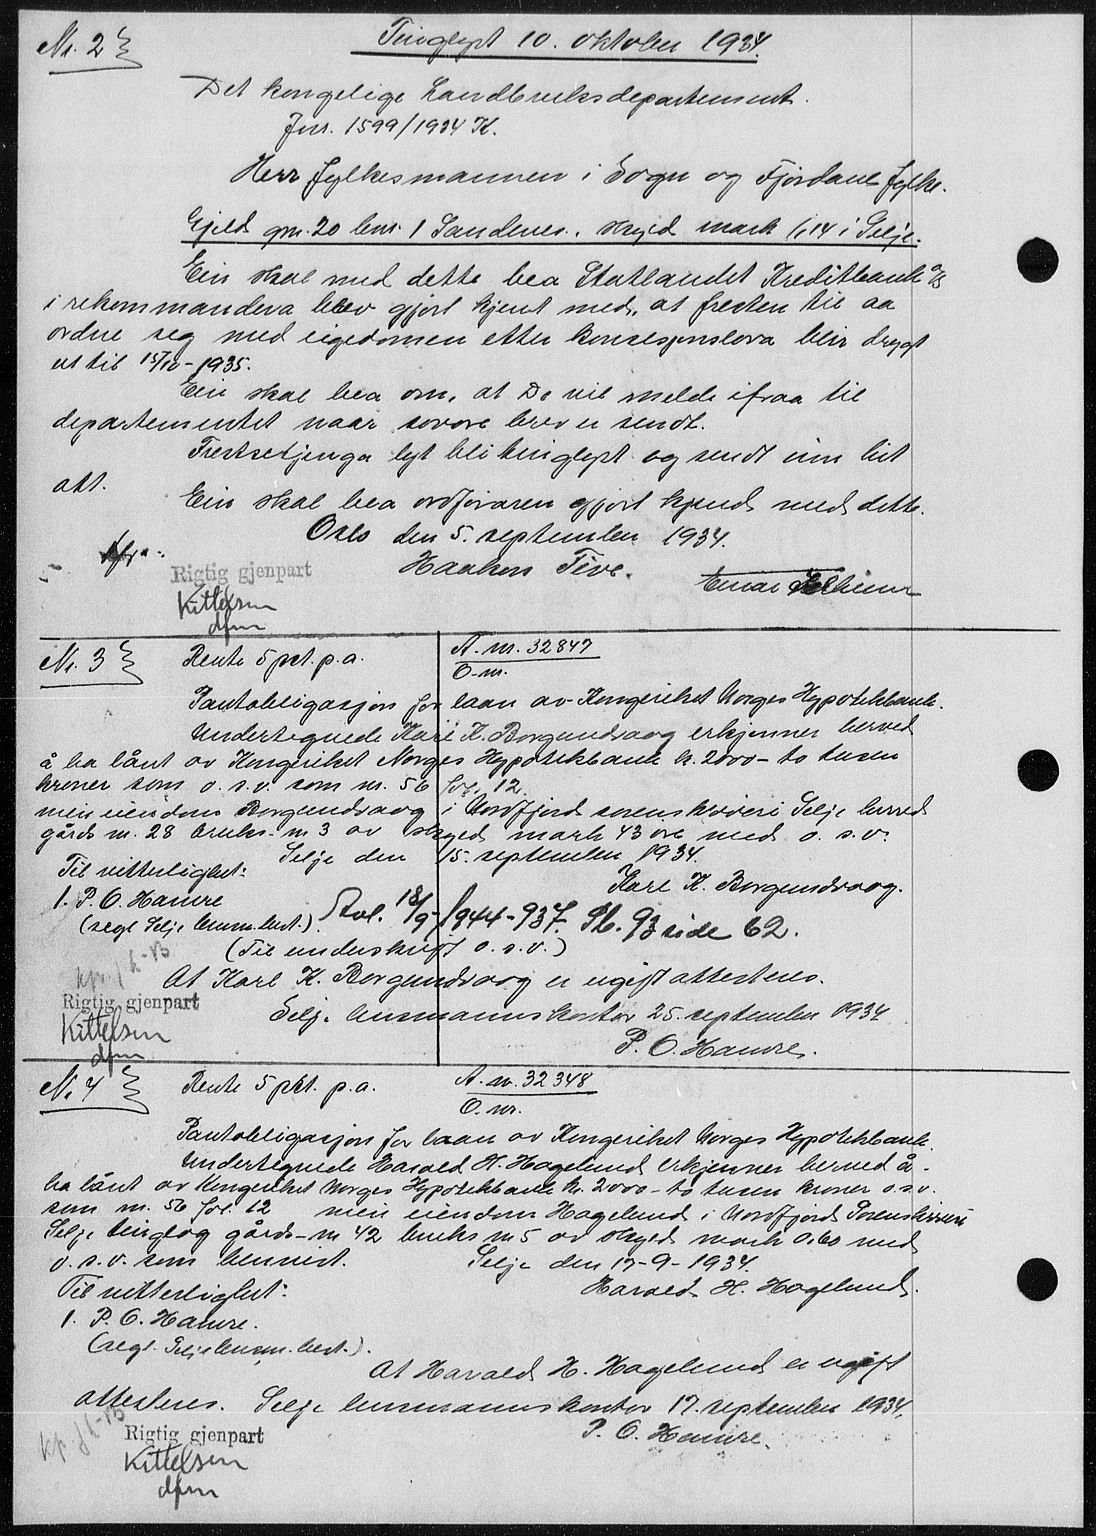 Nr. 2
Tinglyst 10. oktober 1934.
Det kongelige Landbruksdepartement.
Jnr. 1599/1934 K.
Herr fylkesmannen i Sogn og Fjordane fylke.
Gjeld gnr. 20 bnr. 1 Sandenes. skyld mark 1,14 i Selje.
Ein skal med dette bea Statlandet Kreditbank A/S
i rekommandera brev gjort kjent med, at fresten til aa
ordne seg med eigedomen etter konsesjonslova blir drygt
ut til 15/10-1935.
Ein skal bea om, at De vil melde ifraa til
departementet naar sovore brev er sendt.
Frestsetjinga lyt bli tinglyst og sendt inn hit
att.
Ein skal bea ordføraren gjort kjend med dette.
Oslo den 5. september 1934.
Haakon Five.
Einar
Rigtig gjenpart
Kittelsen
dfm
Nr. 3
Rente 5 pct. p.a.
A. nr. 32847
O. nr.
Pantobligasjon for laan av Kongeriket Norges Hypotekbank.
Undertegnede Karl K. Borgundvaag erkjenner herved
å ha lånt av Kongeriket Norges Hypotekbank kr. 2000 - to tusen
kroner som o.s.v. som nr. 56 fol. 12.
min eiendom Borgundvaag i Nordfjord sorenskriveri Selje herred
gårds nr. 28 bruks. nr 3 av skyld mark 43 øre med o. s. v.
Selje den 15. september 1934.
Til vitterlighet:
Karl K. Borgundvaag.
1. P. O. Hamre
(segl Selje lensm. best.).
Avl. 18/9-1944-937. Pb. 93 side 62.
(Til underskrift o. s. v.)
At Karl K. Borgundvaag er ugift attesteres.
Selje lensmannskontor 25. september 1934
P. O. Hamre.
Rigtig gjenpart
Kittelsen
dfm
Nr. 4
Rente 5 pkt. p.a.
A. nr. 32348
O. nr.
Pantobligasjon for laan av Kongeriket Norges Hypotekbank.
Undertegnede Harald H. Hagelund erkjenner herved å
ha lånt av Kongeriket Norges Hypotekbank kr. 2000 - to tusen kroner o.s.v.
som nr. 56 fol. 12 min eiendom Hagelund i Nordfjord Sorenskriveri
Selje tinglag gårds-nr 42 bruks nr 5 av skyld mark 0.60 med
o. s. v. som bennevt.
Selje den 17-9-1934.
Til vitterlighet:
Harald H. Hagelund.
1. P. O. Hamre.
(segl. Selje lensm. best.).
At Harald H. Hagelund er ugift
attesteres. Selje lensmannskontor 17. september 1934.
P. O. Hamre.
Rigtig gjenpart
Kittelsen
dfm